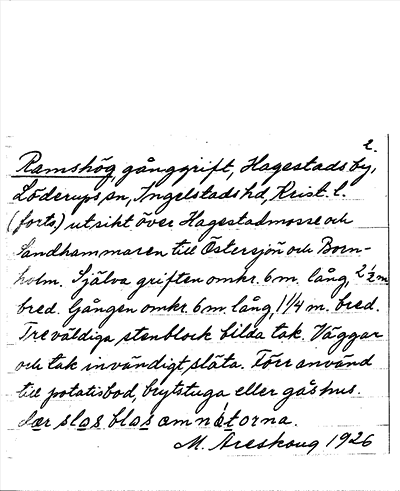 2.
Ramshög, gånggrift, Hagestads by,
Löderups sn, Ingelstads hd, Krist. l.
(forts.) utsikt över Hagestadmosse och
Sandhammaren till Östersjön och Born-
holm. Själva griften omkr. 6 m. lång, 2 1/2 m
bred. Gången omkr. 6 m. lång, 1 1/4 m. bred.
Tre väldiga stenblock bilda tak. Väggar
och tak invändigt släta. Förr använd
till potatisbod, brytstuga eller gåshus.
blas om nätorna.
M. Areskoug 1926